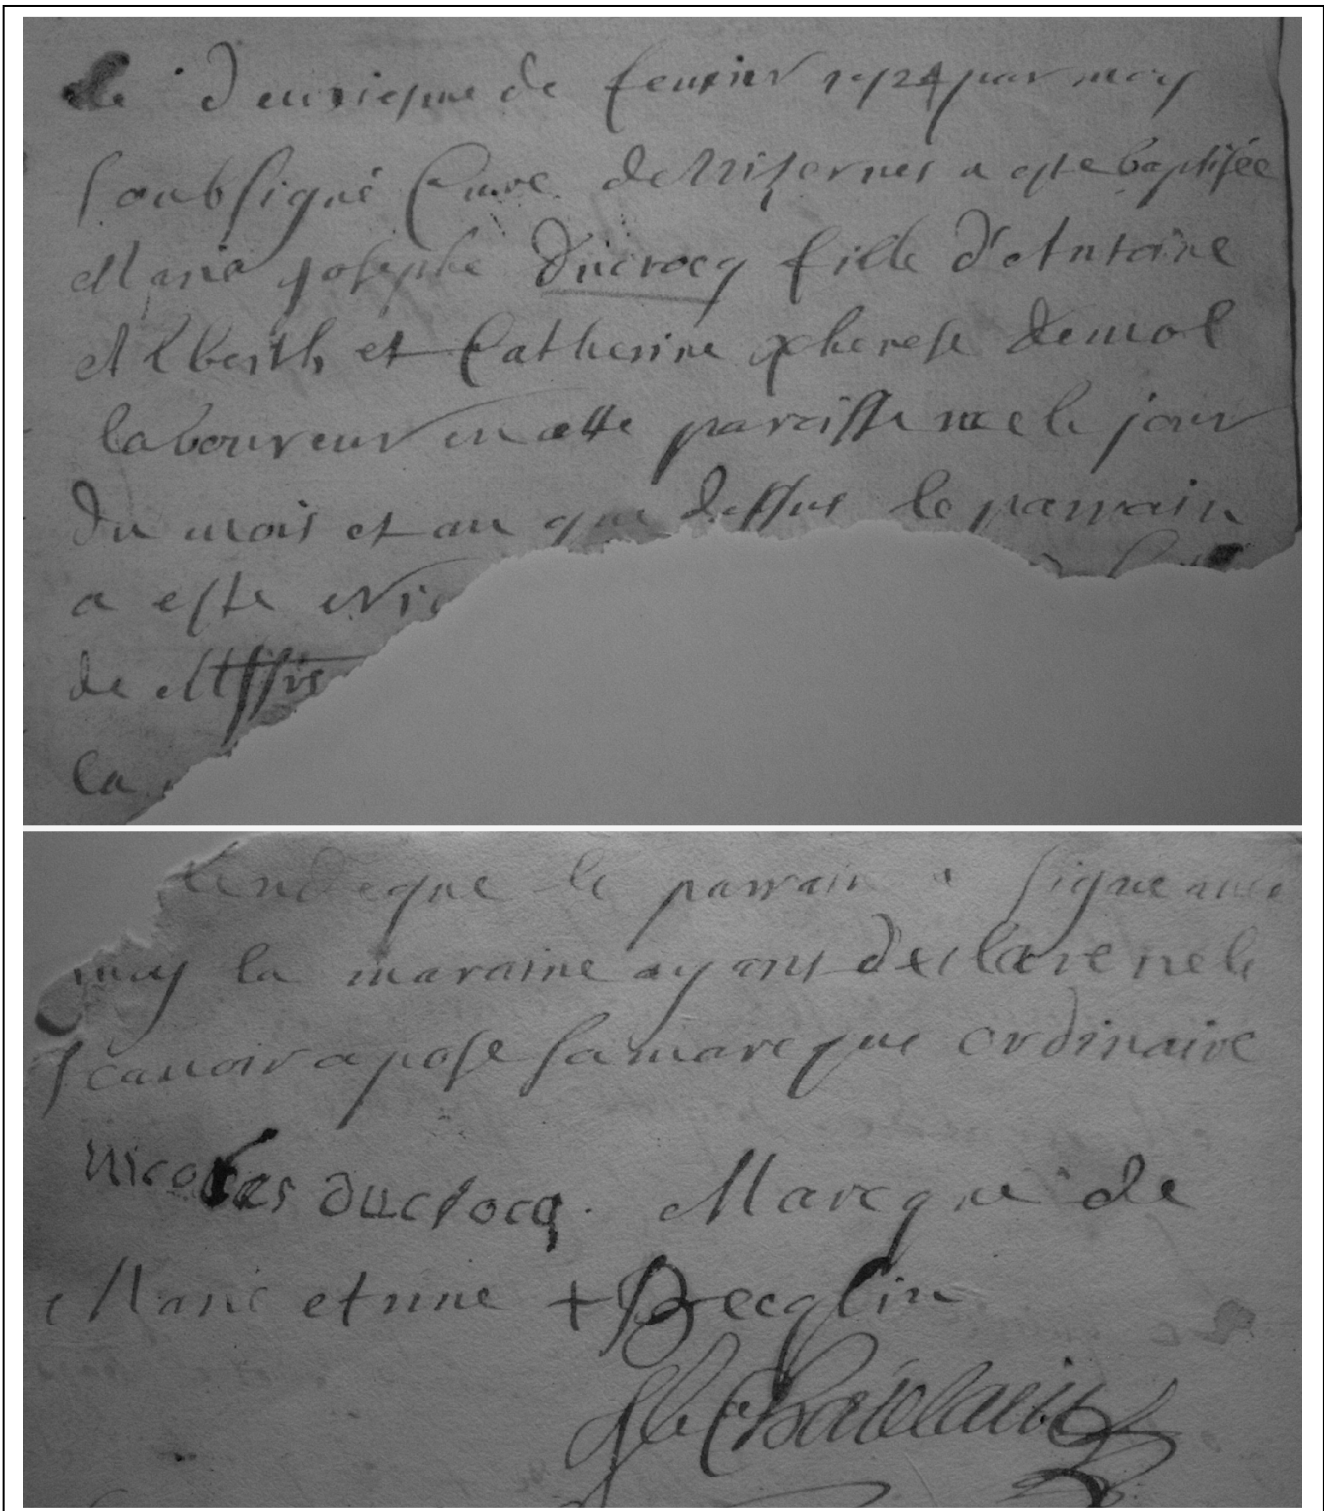 le deuxiesme de feurier 1724 par moy
soubsigné Cure de Nisernes a este baptisée
Marie josephe Ducrocq fille d'Antoine
Alberth et Catherine therese demol
laboureur en cette paroisse nee le jour
du mois et an que dessus le parrain
a este Nic
de
la
que le parrain a signe avec
moy la maraine ayant declare ne le
scauoir a pose sa marcque ordinaire
Nicolas ducrocq. Marcque de
Marie Anne + Becqlin